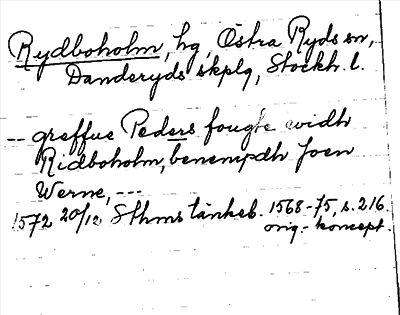 Rydboholm, hg, Östra Ryds sn,
Danderyds skplg, Stockh. l.
-- greffue Peders fougte widh
Ridboholm, benempdh Joen
Werne, ---
1572 20/12 Sthms tänkeb. 1568-75, s. 216.
orig.-koncept.